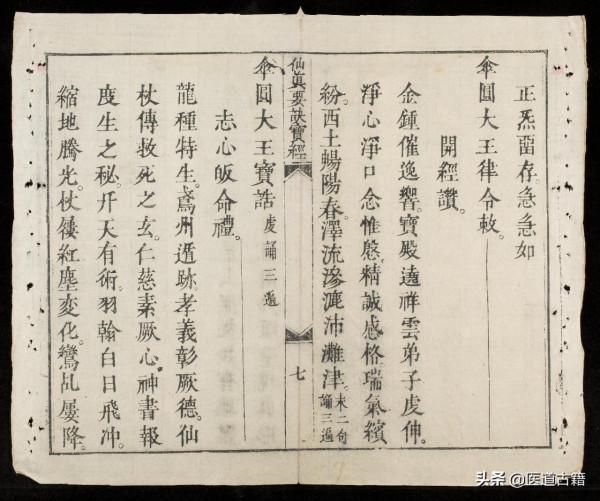 正炁畱存。急急如
傘圓大王律令敕。
開經讚。
金鍾催逸響。寶殿遶祥雲弟子虔伸。
淨心淨口念惟慇。精誠感格瑞氣繽
紛。西土暢陽春。澤流滲漉沛灘津。末二句誦三遍
仙真要訣寶經
七
傘圓大王寶誥 虔誦三遍
志心皈命禮。
龍種特生。鳶州遁跡。孝義彰厥德。仙
杖傳救死之玄。仁慈素厥心神書報
度生之秘。廾天有術。羽翰白日飛冲。
縮地騰光。杖僂紅塵変化。鸞乩屢降。
头条 @医道古籍